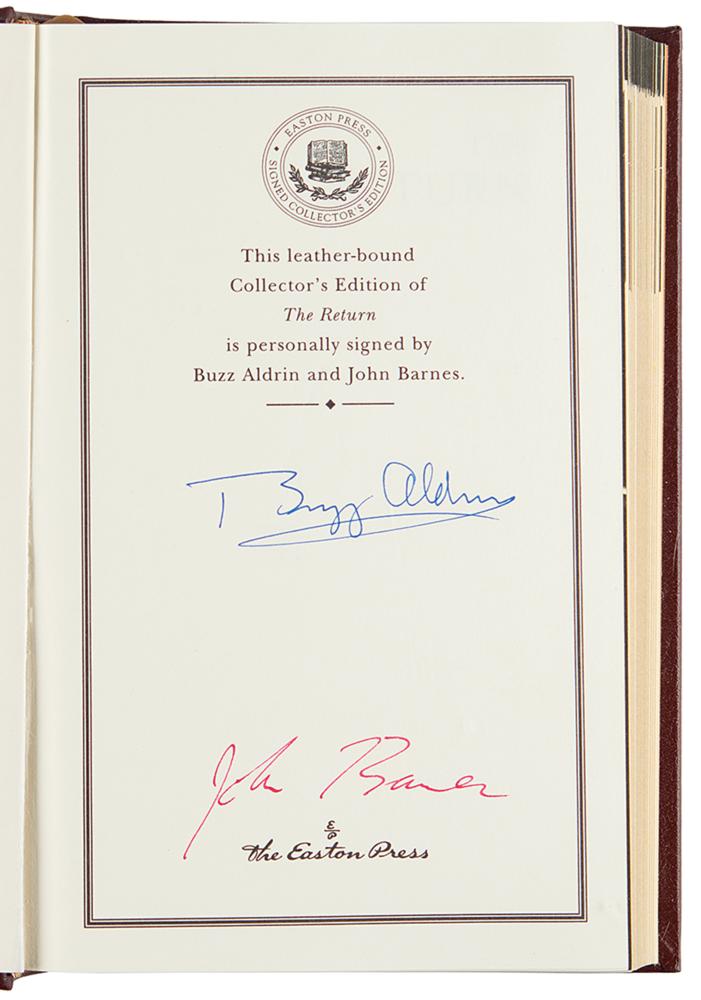 EASTON PRESS
SIGNED COLLECTOR'S EDITION
This leather-bound
Collector's Edition of
The Return
is personally signed by
Buzz Aldrin and John Barnes.
Buzz Aldrin
John Barnes
E/P
the Easton Press